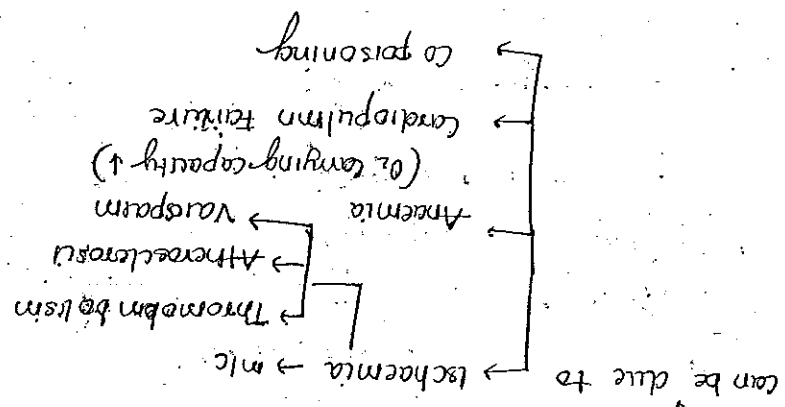 can be due to → Ischaemia → m/c
→ Thromobmbolism
→ Atherosclerosis
→ Vasospasm
→ Anaemia
(O₂ carrying capacity ↓)
→ Cardiopulmn Failure
→ Co poisoning